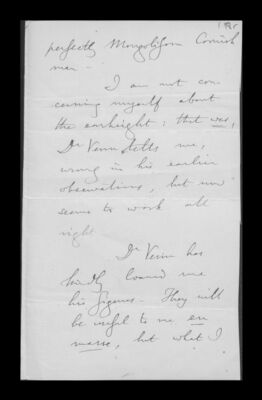 perfectly Mongoliform Cornish
man -
I am not con
cerning myself about
the earheight: that was,
Dr Venn tells me,
wrong in his earlier
observations, but now
seems to work all
right
Dr Venn has
kindly loaned me
his figures - They will
be useful to me en
masse, but what I